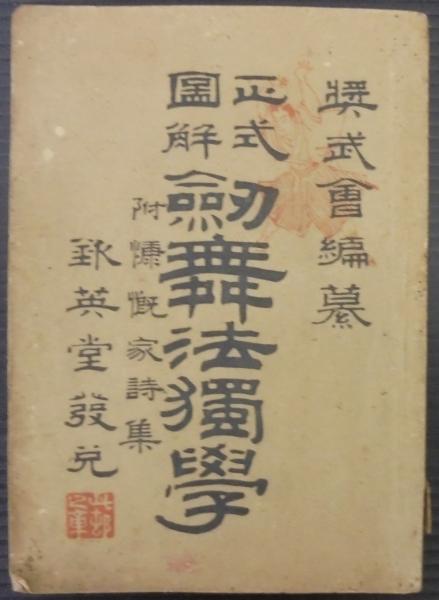 奨武會編纂
正式
圖解
劔舞法獨學
附慷慨家詩集
英堂發兌